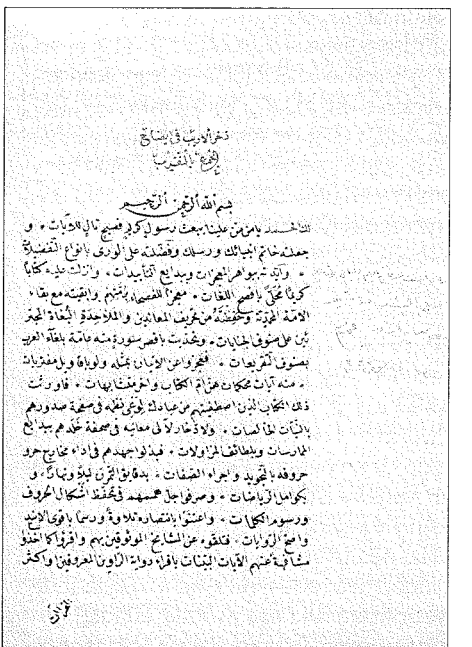 ذخر الاريب في ايضاح
الجمع بالتقريب
بسم الله الرحمن الرحيم
لك الحمد يا من منّ علينا ببعث رسول كريم فصيح تال للآيات و
جعلته خاتم انبيائك ورسلك وفضلته على الورى بانواع التفضيلة
وأيدته بجواهر المعجزات وبدايع التأييدات وانزلت عليه كتابا
كريما محلّى بافصح اللغات معجزا للفصحاء وابقيته مع بقاء
الامة المحمدية وحفظته من تحريف المعاندين والملاحدة البغاة
على صنوف الجنايات وتحديت باقصر سورة منه عامة بلغاء العرب
بصنوف التقريعات فعجزوا عن الاتيان بمثله ولو بآية وبل مفتريات
منه آيات محكمات هن ام الكتاب واخر متشابهات فاورثت
ذلك الكتاب الذين اصطفيتهم من عبادك ليوعى نظمه في صفحة صدورهم
بالنيات الخالصات ولادخار لآلي معانيه في صحفة خلدهم ببدايع
الممارسات وبلطائف المزاولات فبذلوا جهدهم في اداء مخارج حرو
حروفه بالتجويد واجراء الصفات بدقايق التمرن ليلا ونهارا و
بكوامل الرياضات وصرفوا جل هممهم في تحفظ اشكال الحروف
ورسوم الكلمات واعتنوا بانتصاره تلاوة ورسما باقوى الاسانيد
واصح الروايات فتلقوه عن المشايخ الموثوقين بهم واقرؤا كما اخذوا
مشافهة عنهم الآيات البينات باقراء رواية الراوين المعروفين واكثر